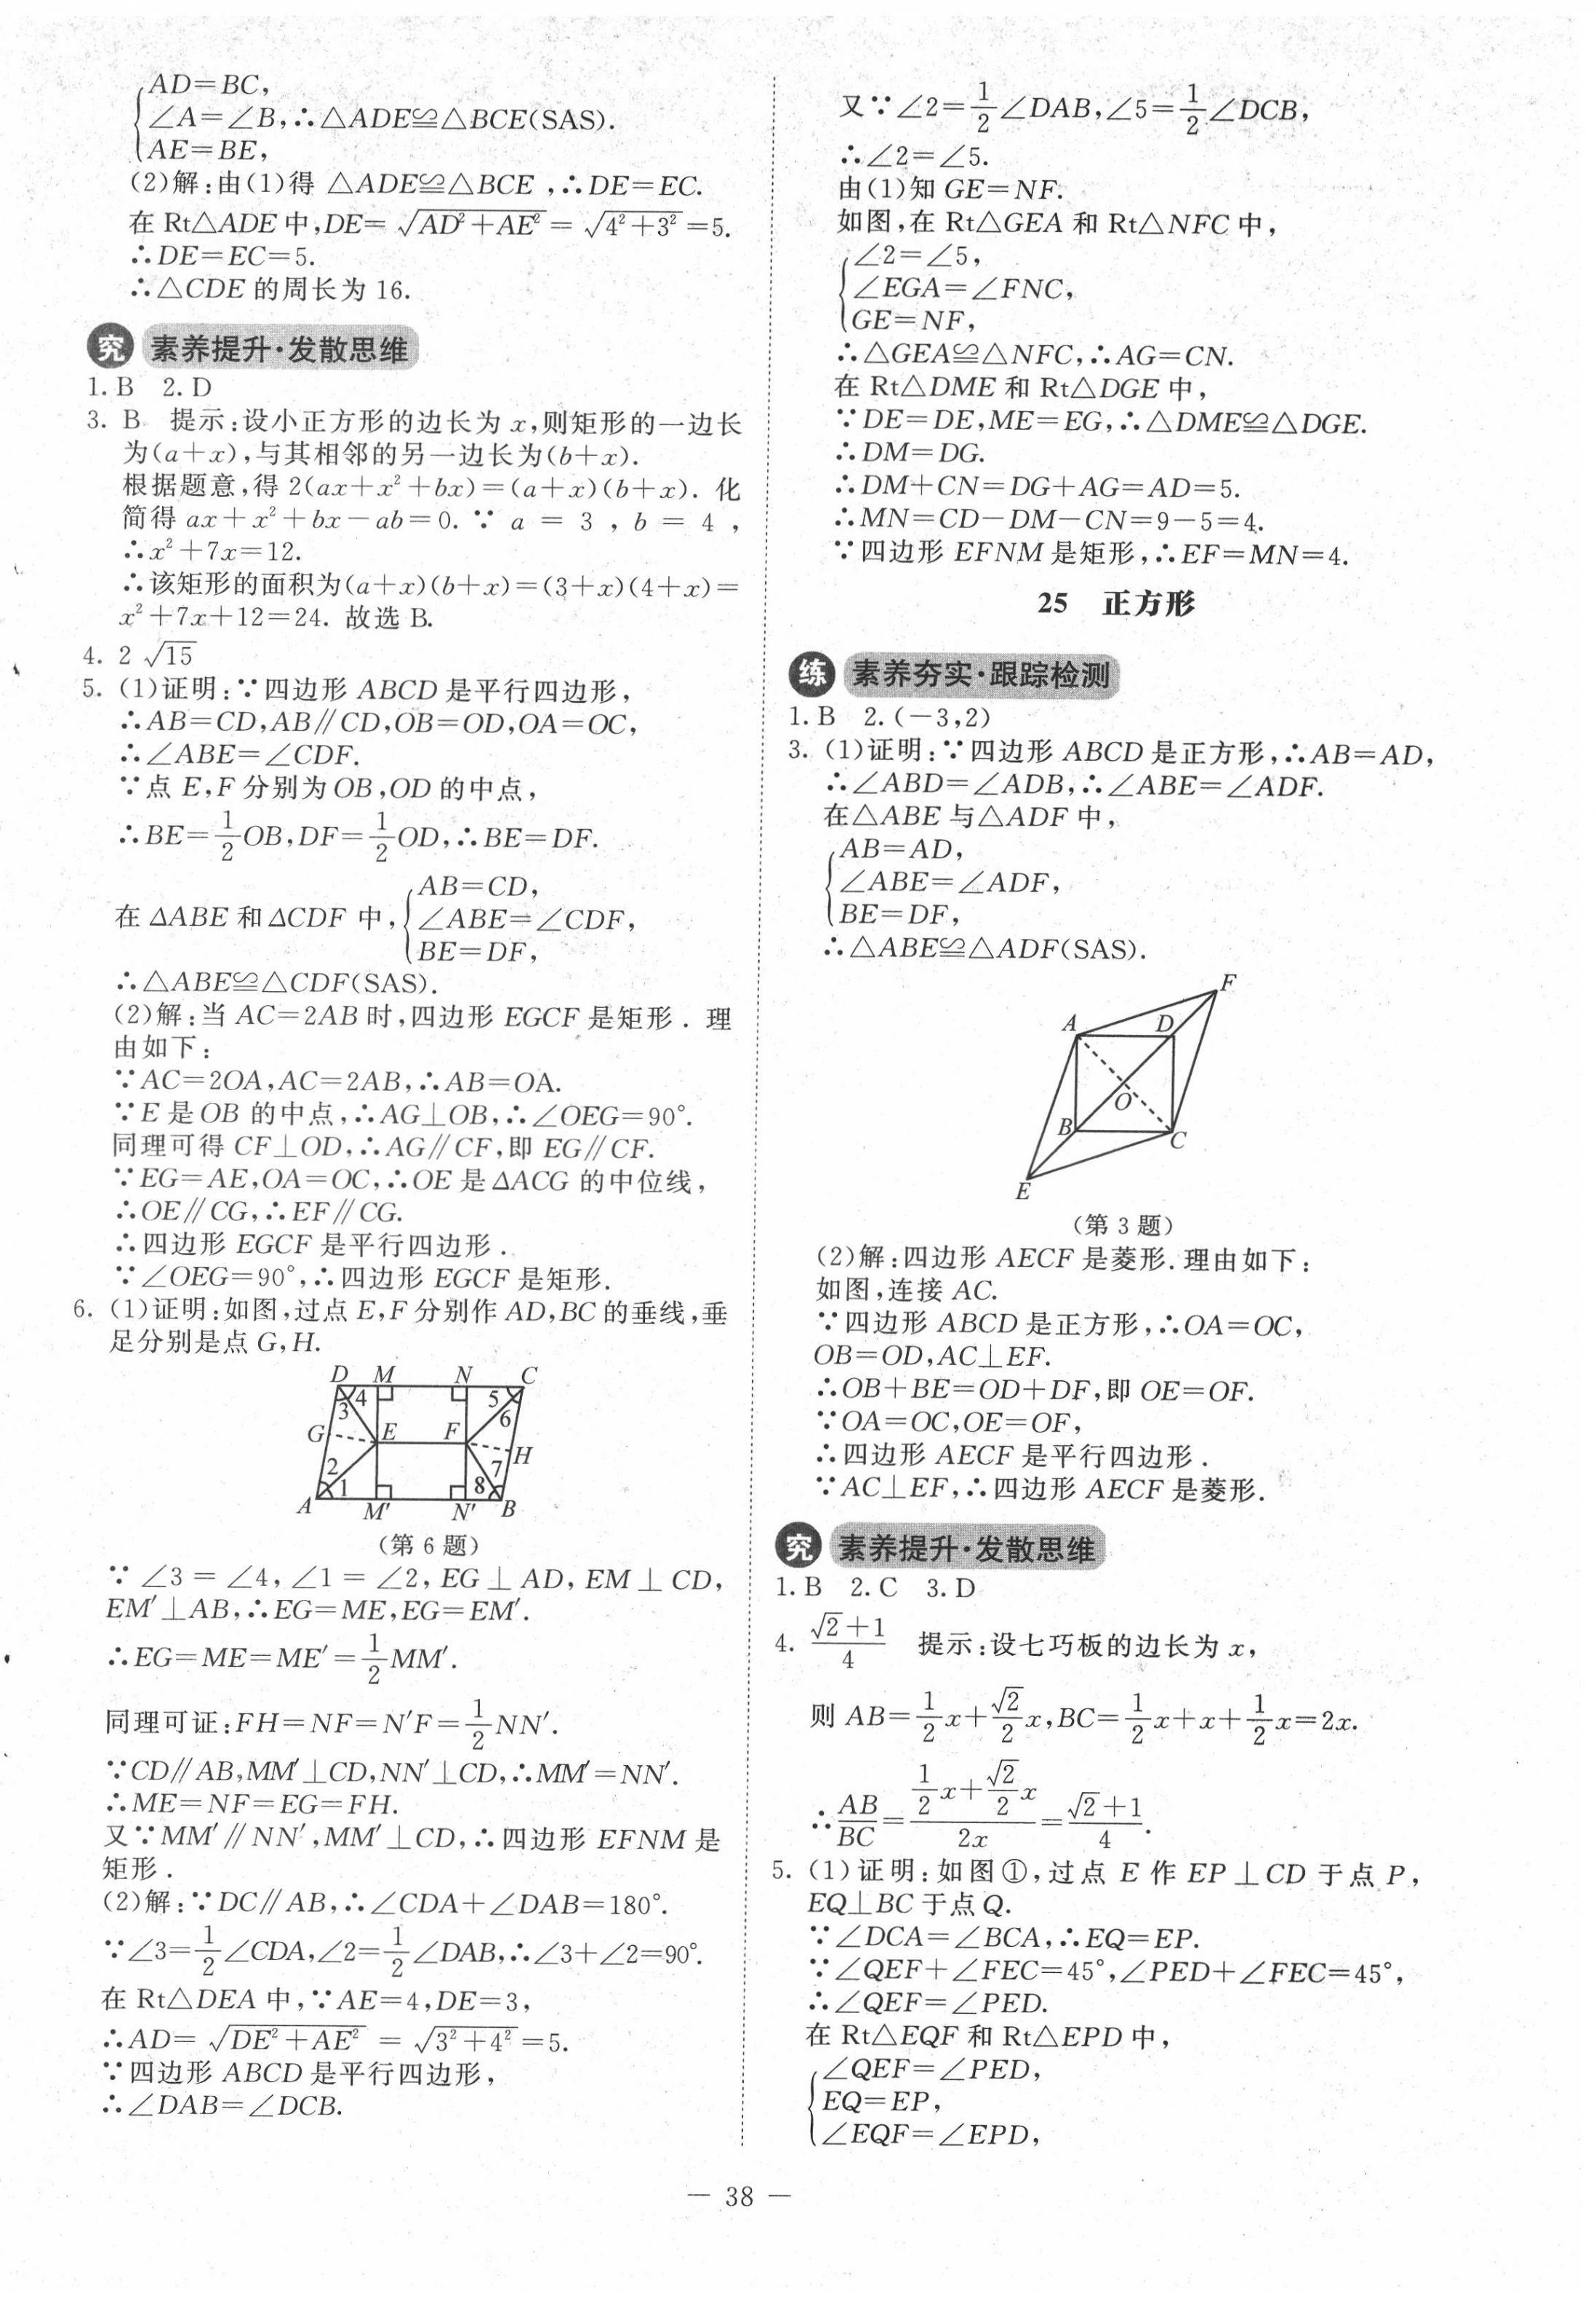 AD=BC,
∠A=∠B,∴△ADE≌△BCE(SAS).
AE=BE,
(2)解:由(1)得 △ADE≌△BCE ,∴DE=EC.
在 Rt△ADE 中,DE=√(AD²+AE²)=√(4²+3²)=5.
∴DE=EC=5.
∴△CDE 的周长为 16.
究 素养提升·发散思维
1. B 2. D
3. B 提示:设小正方形的边长为 x,则矩形的一边长
为(a+x),与其相邻的另一边长为(b+x).
根据题意,得 2(ax+x²+bx)=(a+x)(b+x). 化
简得 ax+x²+bx-ab=0. ∵ a = 3 , b = 4 ,
∴x²+7x=12.
∴该矩形的面积为(a+x)(b+x)=(3+x)(4+x)=
x²+7x+12=24. 故选 B.
4. 2√15
5. (1)证明:∵四边形 ABCD 是平行四边形,
∴AB=CD,AB∥CD,OB=OD,OA=OC,
∴∠ABE=∠CDF.
∵点 E,F 分别为 OB,OD 的中点,
∴BE=1/2OB,DF=1/2OD,∴BE=DF.
AB=CD,
在 ΔABE 和 ΔCDF 中, ∠ABE=∠CDF,
BE=DF,
∴△ABE≌△CDF(SAS).
(2)解:当 AC=2AB 时,四边形 EGCF 是矩形. 理
由如下:
∵AC=2OA,AC=2AB,∴AB=OA.
∵E 是 OB 的中点,∴AG⊥OB,∴∠OEG=90°.
同理可得 CF⊥OD,∴AG∥CF,即 EG∥CF.
∵EG=AE,OA=OC,∴OE 是 ΔACG 的中位线,
∴OE∥CG,∴EF∥CG.
∴四边形 EGCF 是平行四边形.
∵∠OEG=90°,∴四边形 EGCF 是矩形.
6. (1)证明:如图,过点 E,F 分别作 AD,BC 的垂线,垂
足分别是点 G,H.
D M N C
4 3 5 6
G E F H
2 1 7 8
A M′ N′ B
(第 6 题)
∵ ∠3 = ∠4, ∠1 = ∠2, EG ⊥ AD, EM ⊥ CD,
EM′⊥AB,∴EG=ME,EG=EM′.
∴EG=ME=ME′=1/2MM′.
同理可证:FH=NF=N′F=1/2NN′.
∵CD∥AB,MM′⊥CD,NN′⊥CD,∴MM′=NN′.
∴ME=NF=EG=FH.
又∵MM′∥NN′,MM′⊥CD,∴四边形 EFNM 是
矩形.
(2)解:∵DC∥AB,∴∠CDA+∠DAB=180°.
∵∠3=1/2∠CDA,∠2=1/2∠DAB,∴∠3+∠2=90°.
在 Rt△DEA 中,∵AE=4,DE=3,
∴AD=√(DE²+AE²)=√(3²+4²)=5.
∵四边形 ABCD 是平行四边形,
∴∠DAB=∠DCB.
又∵∠2=1/2∠DAB,∠5=1/2∠DCB,
∴∠2=∠5.
由(1)知 GE=NF.
如图,在 Rt△GEA 和 Rt△NFC 中,
∠2=∠5,
∠EGA=∠FNC,
GE=NF,
∴△GEA≌△NFC,∴AG=CN.
在 Rt△DME 和 Rt△DGE 中,
∵DE=DE,ME=EG,∴△DME≌△DGE.
∴DM=DG.
∴DM+CN=DG+AG=AD=5.
∴MN=CD-DM-CN=9-5=4.
∵四边形 EFNM 是矩形,∴EF=MN=4.
25 正方形
练 素养夯实·跟踪检测
1. B 2. (-3,2)
3. (1)证明:∵四边形 ABCD 是正方形,∴AB=AD,
∴∠ABD=∠ADB,∴∠ABE=∠ADF.
在△ABE 与△ADF 中,
AB=AD,
∠ABE=∠ADF,
BE=DF,
∴△ABE≌△ADF(SAS).
F
A D
O
B C
E
(第 3 题)
(2)解:四边形 AECF 是菱形.理由如下:
如图,连接 AC.
∵四边形 ABCD 是正方形,∴OA=OC,
OB=OD,AC⊥EF.
∴OB+BE=OD+DF,即 OE=OF.
∵OA=OC,OE=OF,
∴四边形 AECF 是平行四边形.
∵AC⊥EF,∴四边形 AECF 是菱形.
究 素养提升·发散思维
1. B 2. C 3. D
4. (√2+1)/4 提示:设七巧板的边长为 x,
则 AB=1/2x+√2/2x,BC=1/2x+x+1/2x=2x.
∴AB/BC=(1/2x+√2/2x)/2x=(√2+1)/4.
5. (1)证明:如图①,过点 E 作 EP⊥CD 于点 P,
EQ⊥BC 于点 Q.
∵∠DCA=∠BCA,∴EQ=EP.
∵∠QEF+∠FEC=45°,∠PED+∠FEC=45°,
∴∠QEF=∠PED.
在 Rt△EQF 和 Rt△EPD 中,
∠QEF=∠PED,
EQ=EP,
∠EQF=∠EPD,
— 38 —